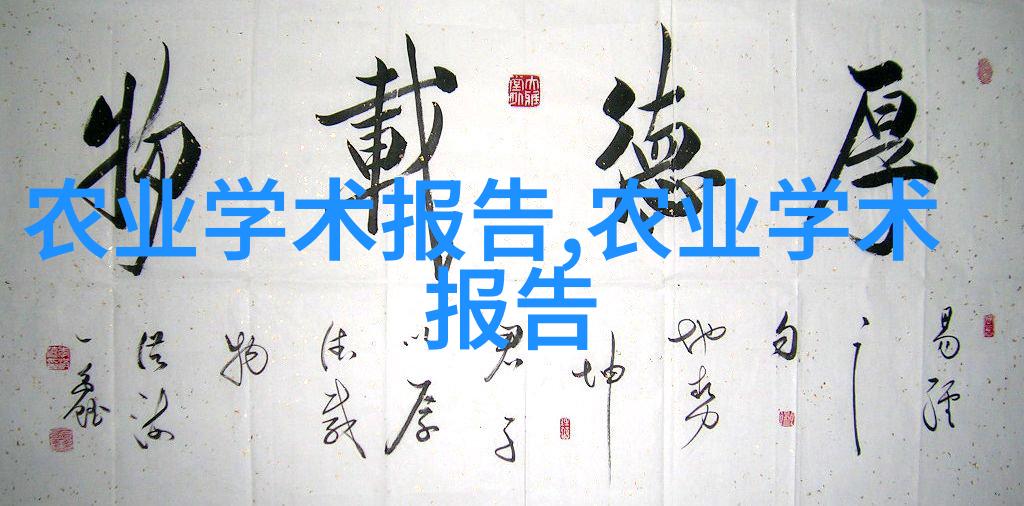 农业学术报告,农业学术
报告
厚德載物
易经
句
地势
坤
君子
以厚
德载
物